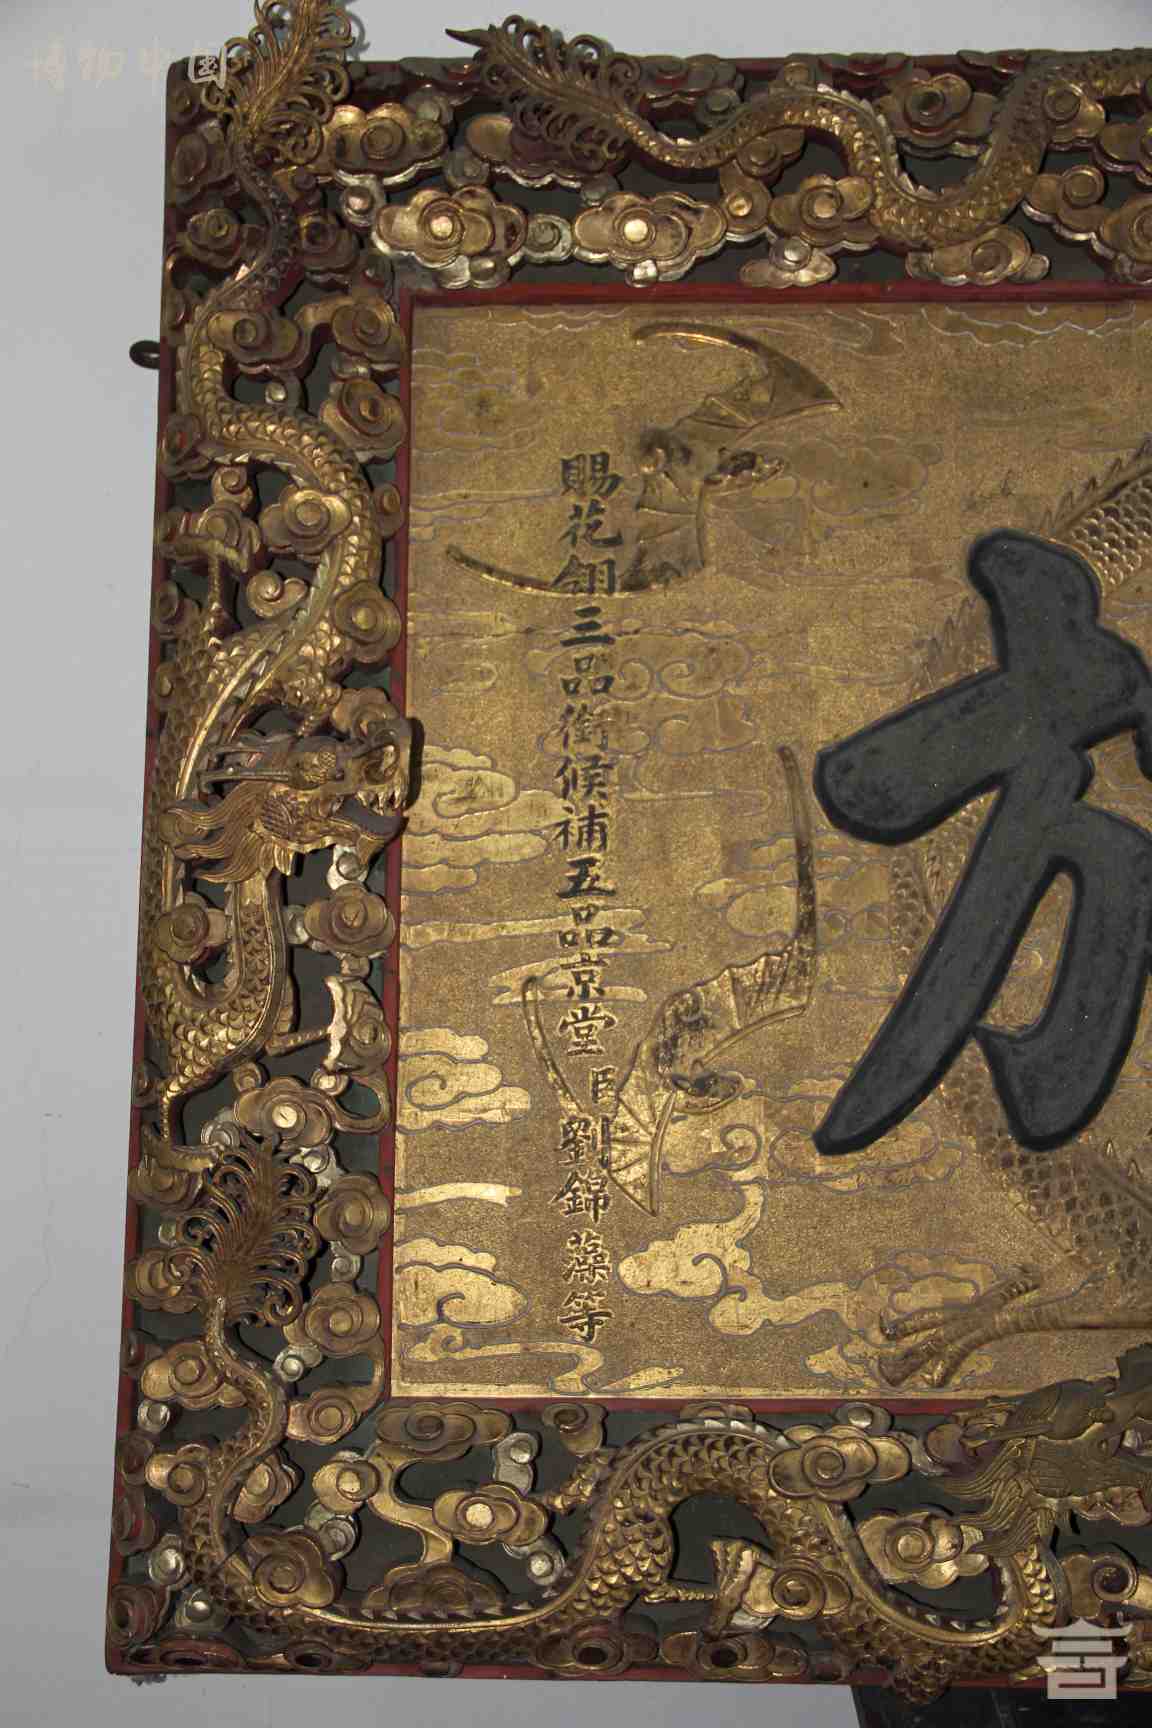 博物中国
方
賜花翎三品銜候補五品京堂臣劉錦藻等